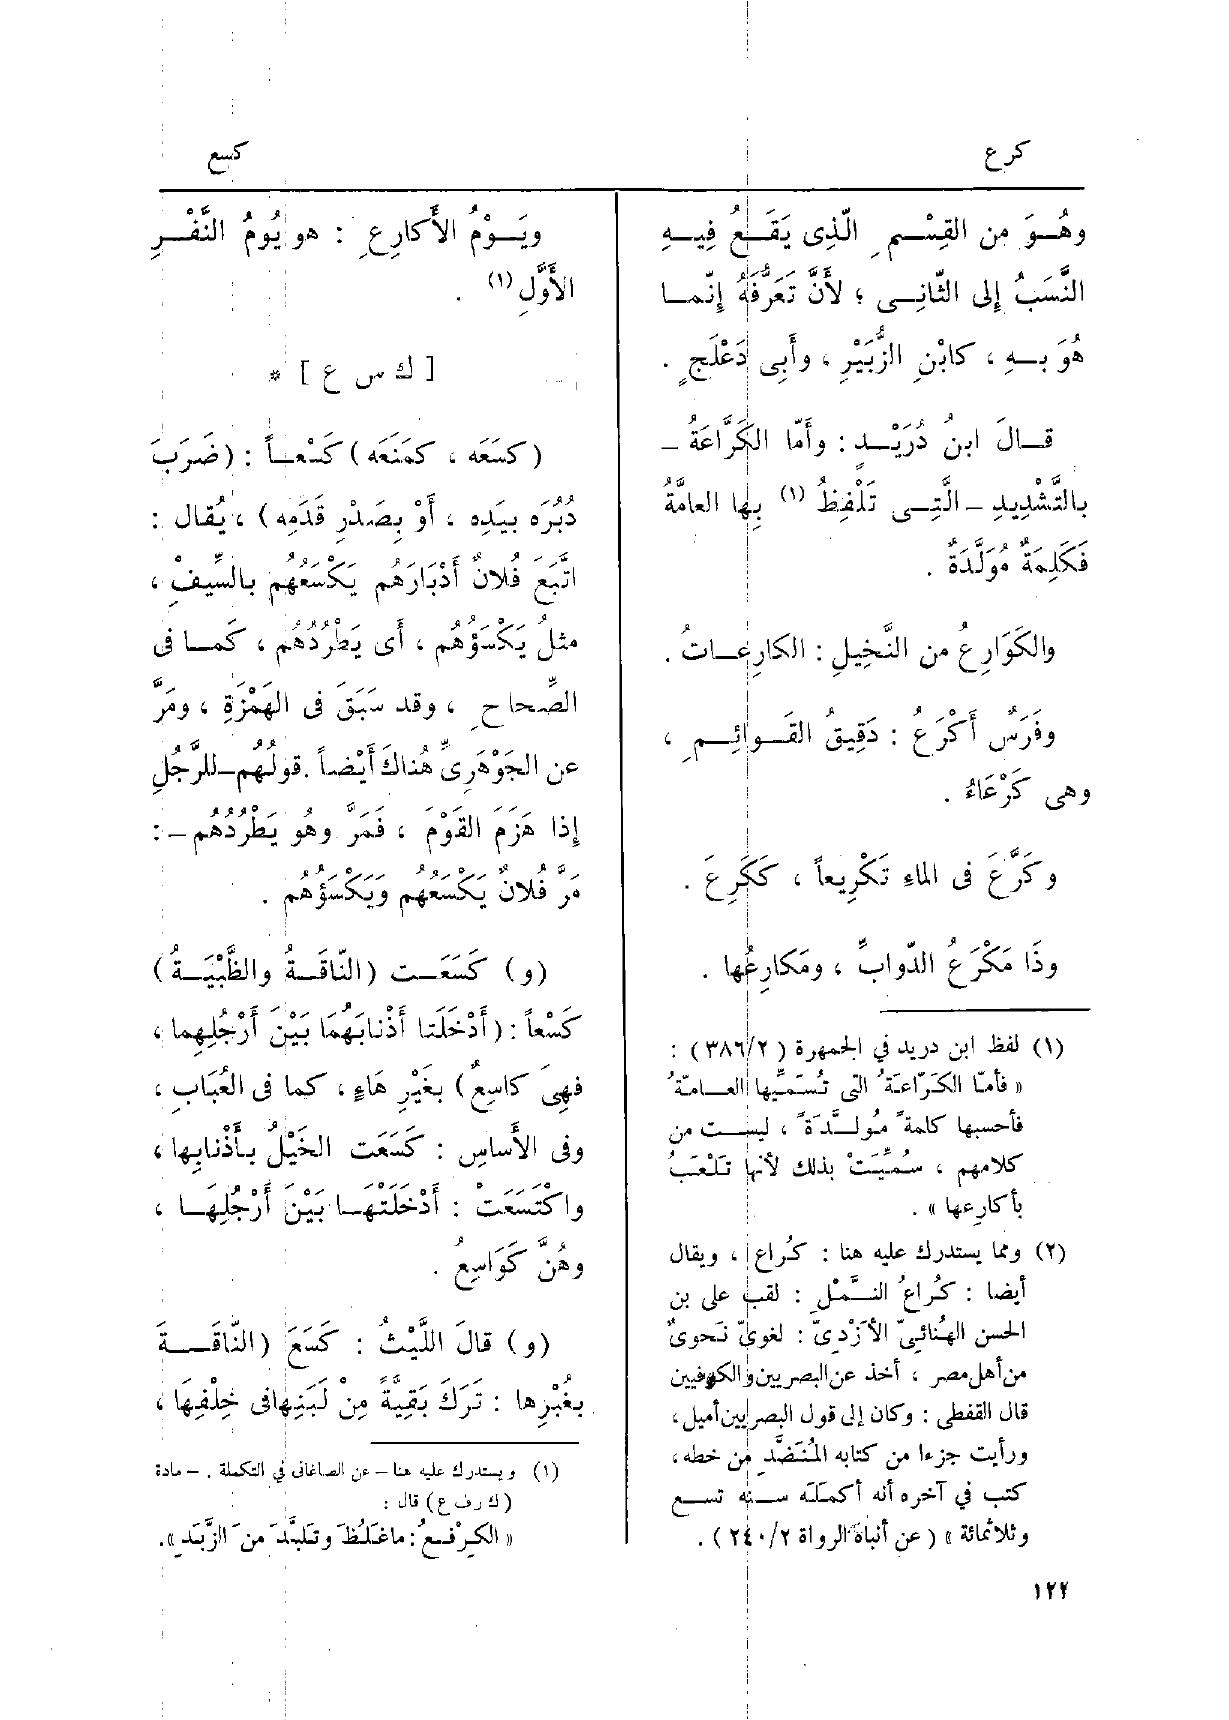 كرع
كسع
وهُـوَ من القِسْمِ الَّذِى يَقَـعُ فِيـهِ
النَّسَبُ إلى الثّانِـى ؛ لأَنَّ تَعَرُّفَهُ إنّمـا
هُوَ بـهِ ، كابْنِ الزُّبَيْرِ ، وأَبِى دَعْلَجٍ .
قـالَ ابنُ دُرَيْـدٍ : وأَمّا الكَرَّاعَةُ ـ
بالتَّشْدِيدِ ـ الَّتِـى تَلْفِظُ (١) بِها العامَّةُ
فَكَلِمَةٌ مُوَلَّدَةٌ .
والكَوَارِعُ من النَّخِيلِ : الكارِعَـاتُ .
وفَرَسٌ أَكْرَعُ : دَقِيقُ القَـوائِـمِ ،
وهى كَرْعَاءُ .
وكَرَّعَ فى الماءِ تَكْرِيعاً ، كَكَرِعَ .
وذَا مَكْرَعُ الدَّوابِّ ، ومَكارِعُها .
(١) لفظ ابن دريد في الجمهرة (٣٨٦/٢) :
« فأمّا الكَرّاعَةُ التى تُسَمِّيها العـامّةُ
فأحسبها كلمةً مُولَّدَةً ، ليسـت من
كلامهم ، سُمِّيَتْ بذلك لأنها تَلْعَبُ
بأكارِعها » .
(٢) ومما يستدرك عليه هنا : كُراع ، ويقال
أيضا : كُراعُ النَّمْلِ : لقب على بن
الحسن الهُنائىّ الأَزْدِىّ : لغوىّ نَحوىٌّ
من أهل مصر ، أخذ عن البصريين والكوفيين
قال القفطى : وكان إلى قول البصريين أميل ،
ورأيت جزءا من كتابه المُنَضَّدِ من خطه ،
كتب في آخره أنه أكمله سـنة تسع
وثلاثمائة » (عن أنباه الرواة ٢٤٠/٢) .
ويَـوْمُ الأَكارِعِ : هو يُومُ النَّفْـرِ
الأَوَّلِ (١) .
[ ك س ع ] *
(كَسَعَه ، كمَنَعَه) كَسْعـاً : (ضَرَبَ
دُبُرَه بيَدِه ، أَوْ بِصَدْرِ قَدَمِه) ، يُقال :
اتَّبَعَ فُلانٌ أَدْبَارَهُم يَكْسَعُهُم بالسَّيفْ ،
مثلُ يَكْسَؤُهُم ، أَى يَطْرُدُهُم ، كَمـا فى
الصِّحاحِ ، وقد سَبَقَ فى الهَمْزَةِ ، ومَرَّ
عن الجَوْهَرِىِّ هُناكَ أَيْضاً . قولُهُم ـ للرَّجُلِ
إذا هَزَمَ القَوْمَ ، فَمَرَّ وهُو يَطْرُدُهُم ـ :
مَرَّ فُلانٌ يَكْسَعُهم وَيَكْسَؤُهُم .
(و) كَسَعَـت (النّاقَـةُ والظَّبْيَـةُ)
كَسْعاً : (أَدْخَلَتا أَذْنابَهُمَا بَيْنَ أَرْجُلِهِما ،
فهِىَ كاسِعٌ) بغَيْرِ هَاءٍ ، كما فى العُبَابِ ،
وفى الأَساسِ : كَسَعَت الخَيْلُ بـأَذْنابِها ،
واكْتَسَعَتْ : أَدْخَلَتْهَـا بَيْنَ أَرْجُلِهَـا ،
وهُنَّ كَوَاسِعُ .
(و) قالَ اللَّيْثُ : كَسَعَ (النّاقَـةَ
بغُبْرِها : تَرَكَ بَقِيَّةً مِنْ لَبَنِها فى خِلْفِهَا ،
(١) ويستدرك عليه هنا ـ عن الصاغانى فى التكملة . ـ مادة
(ك رف ع) قال :
« الكِرْفعُ : ماغَلُظَ وتَلَبَّدَ منَ الزَّبَدِ » .
١٢٢